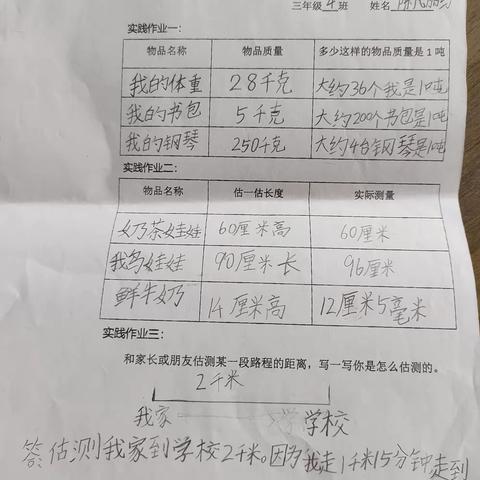 三年级4班 姓名
实践作业一：
物品名称 物品质量 多少这样的物品质量是1吨
我的体重 28千克 大约36个我是1吨
我的书包 5千克 大约200个书包是1吨
我的钢琴 250千克 大约4台钢琴是1吨
实践作业二：
物品名称 估一估长度 实际测量
奶茶娃娃 60厘米高 60厘米
娃娃 90厘米长 96厘米
鲜牛奶 14厘米高 12厘米5毫米
实践作业三：
和家长或朋友估测某一段路程的距离，写一写你是怎么估测的。
2千米
我家 学校
答:估测我家到学校2千米。因为我走1千米15分钟走到